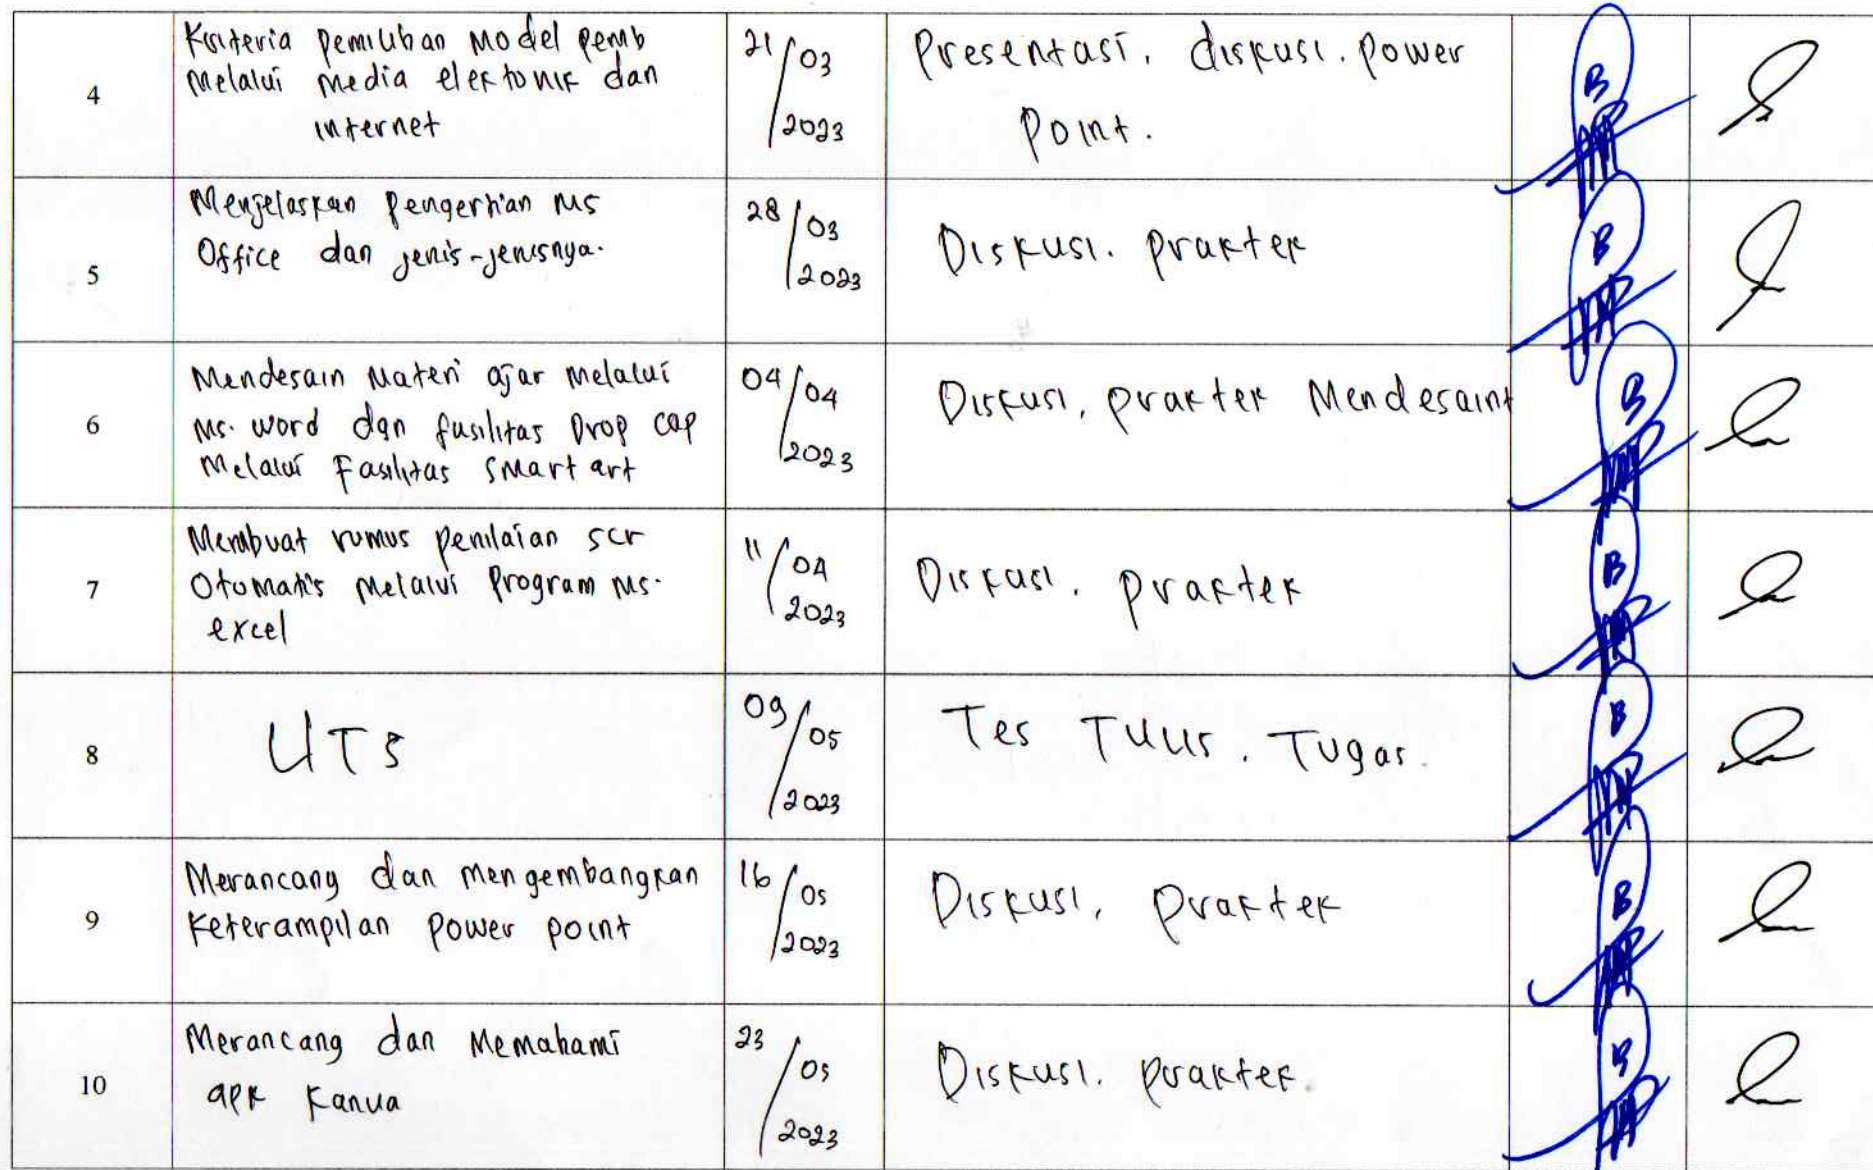 4
Kriteria pemilihan Model pemb
Melalui media elektonik dan
internet
21/03
2023
Presentasi. diskusi. power
Point.
5
Menjelaskan pengertian Ms
Office dan jenis-jenisnya.
28/03
2023
Diskusi. praktek
6
Mendesain Materi ajar Melalui
Ms. word dan fasilitas Drop cap
Melalui Fasilitas smart art
04/04
2023
Diskusi, praktek Mendesaint
7
Membuat rumus penilaian scr
Otomatis Melalui Program Ms.
excel
11/04
2023
Diskusi. praktek
8
UTS
09/05
2023
Tes Tulis. Tugas.
9
Merancang dan mengembangkan
Keterampilan power point
16/05
2023
Diskusi, praktek
10
Merancang dan Memahami
apk Kanva
23/05
2023
Diskusi. praktek.